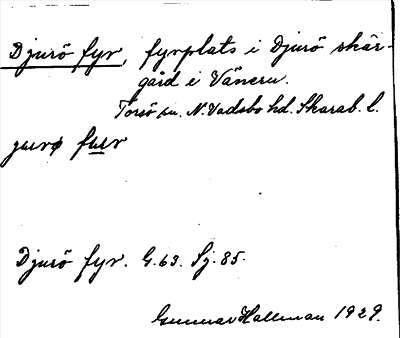 Djurö fyr, fyrplats i Djurö skär-
gård i Vänern.
Torsö sn. N. Vadsbo hd. Skarab. l.
jurø fur
Djurö fyr. G. 63. Sj. 85.
Gunnar Hallman 1929.